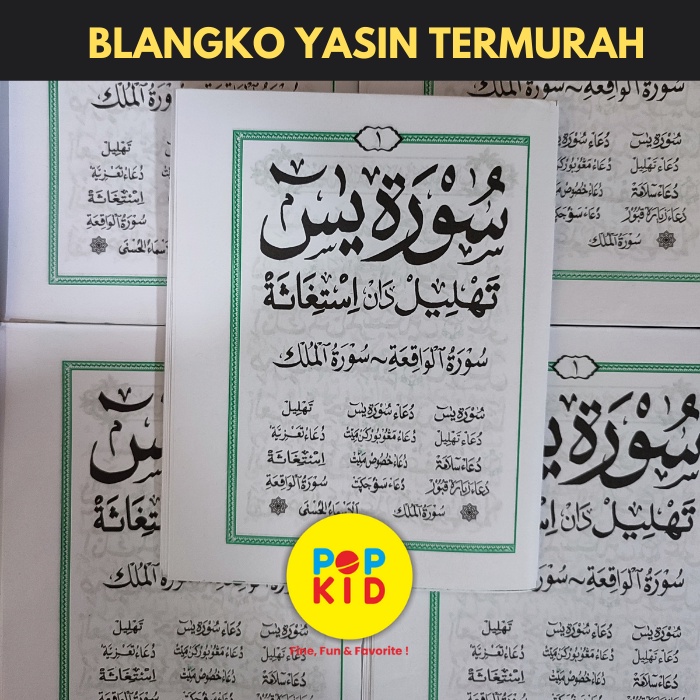 BLANGKO YASIN TERMURAH
١
سُوْرَةُ يٰسٓ
تَهْلِيْل دَانْ اِسْتِغَاثَةْ
سُوْرَةُ الْوَاقِعَةِ ~ سُوْرَةُ الْمُلْكِ
سُوْرَةُ يٰسٓ دُعَاء سُوْرَة يٰسٓ تَهْلِيْل
دُعَاء تَهْلِيْل دُعَاء تَعْزِيَّة
دُعَاء سَلَامَةْ دُعَاء خُصُوْص مَيِّتْ اِسْتِغَاثَةْ
دُعَاء زِيَارَة قُبُوْر سُوْرَةُ الْوَاقِعَةِ
سُوْرَةُ الْمُلْكِ اَلْاَسْمَاءُ الْحُسْنٰى
POP
KID
Fine, Fun & Favorite !